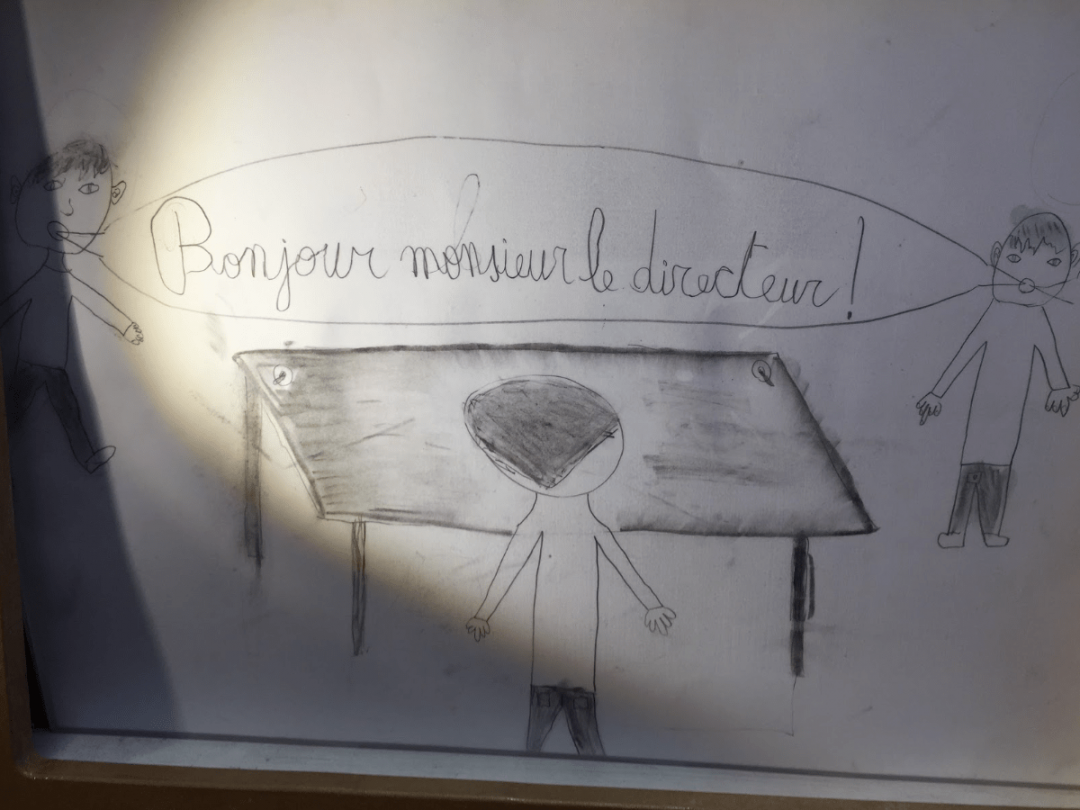 Bonjour monsieur le directeur!